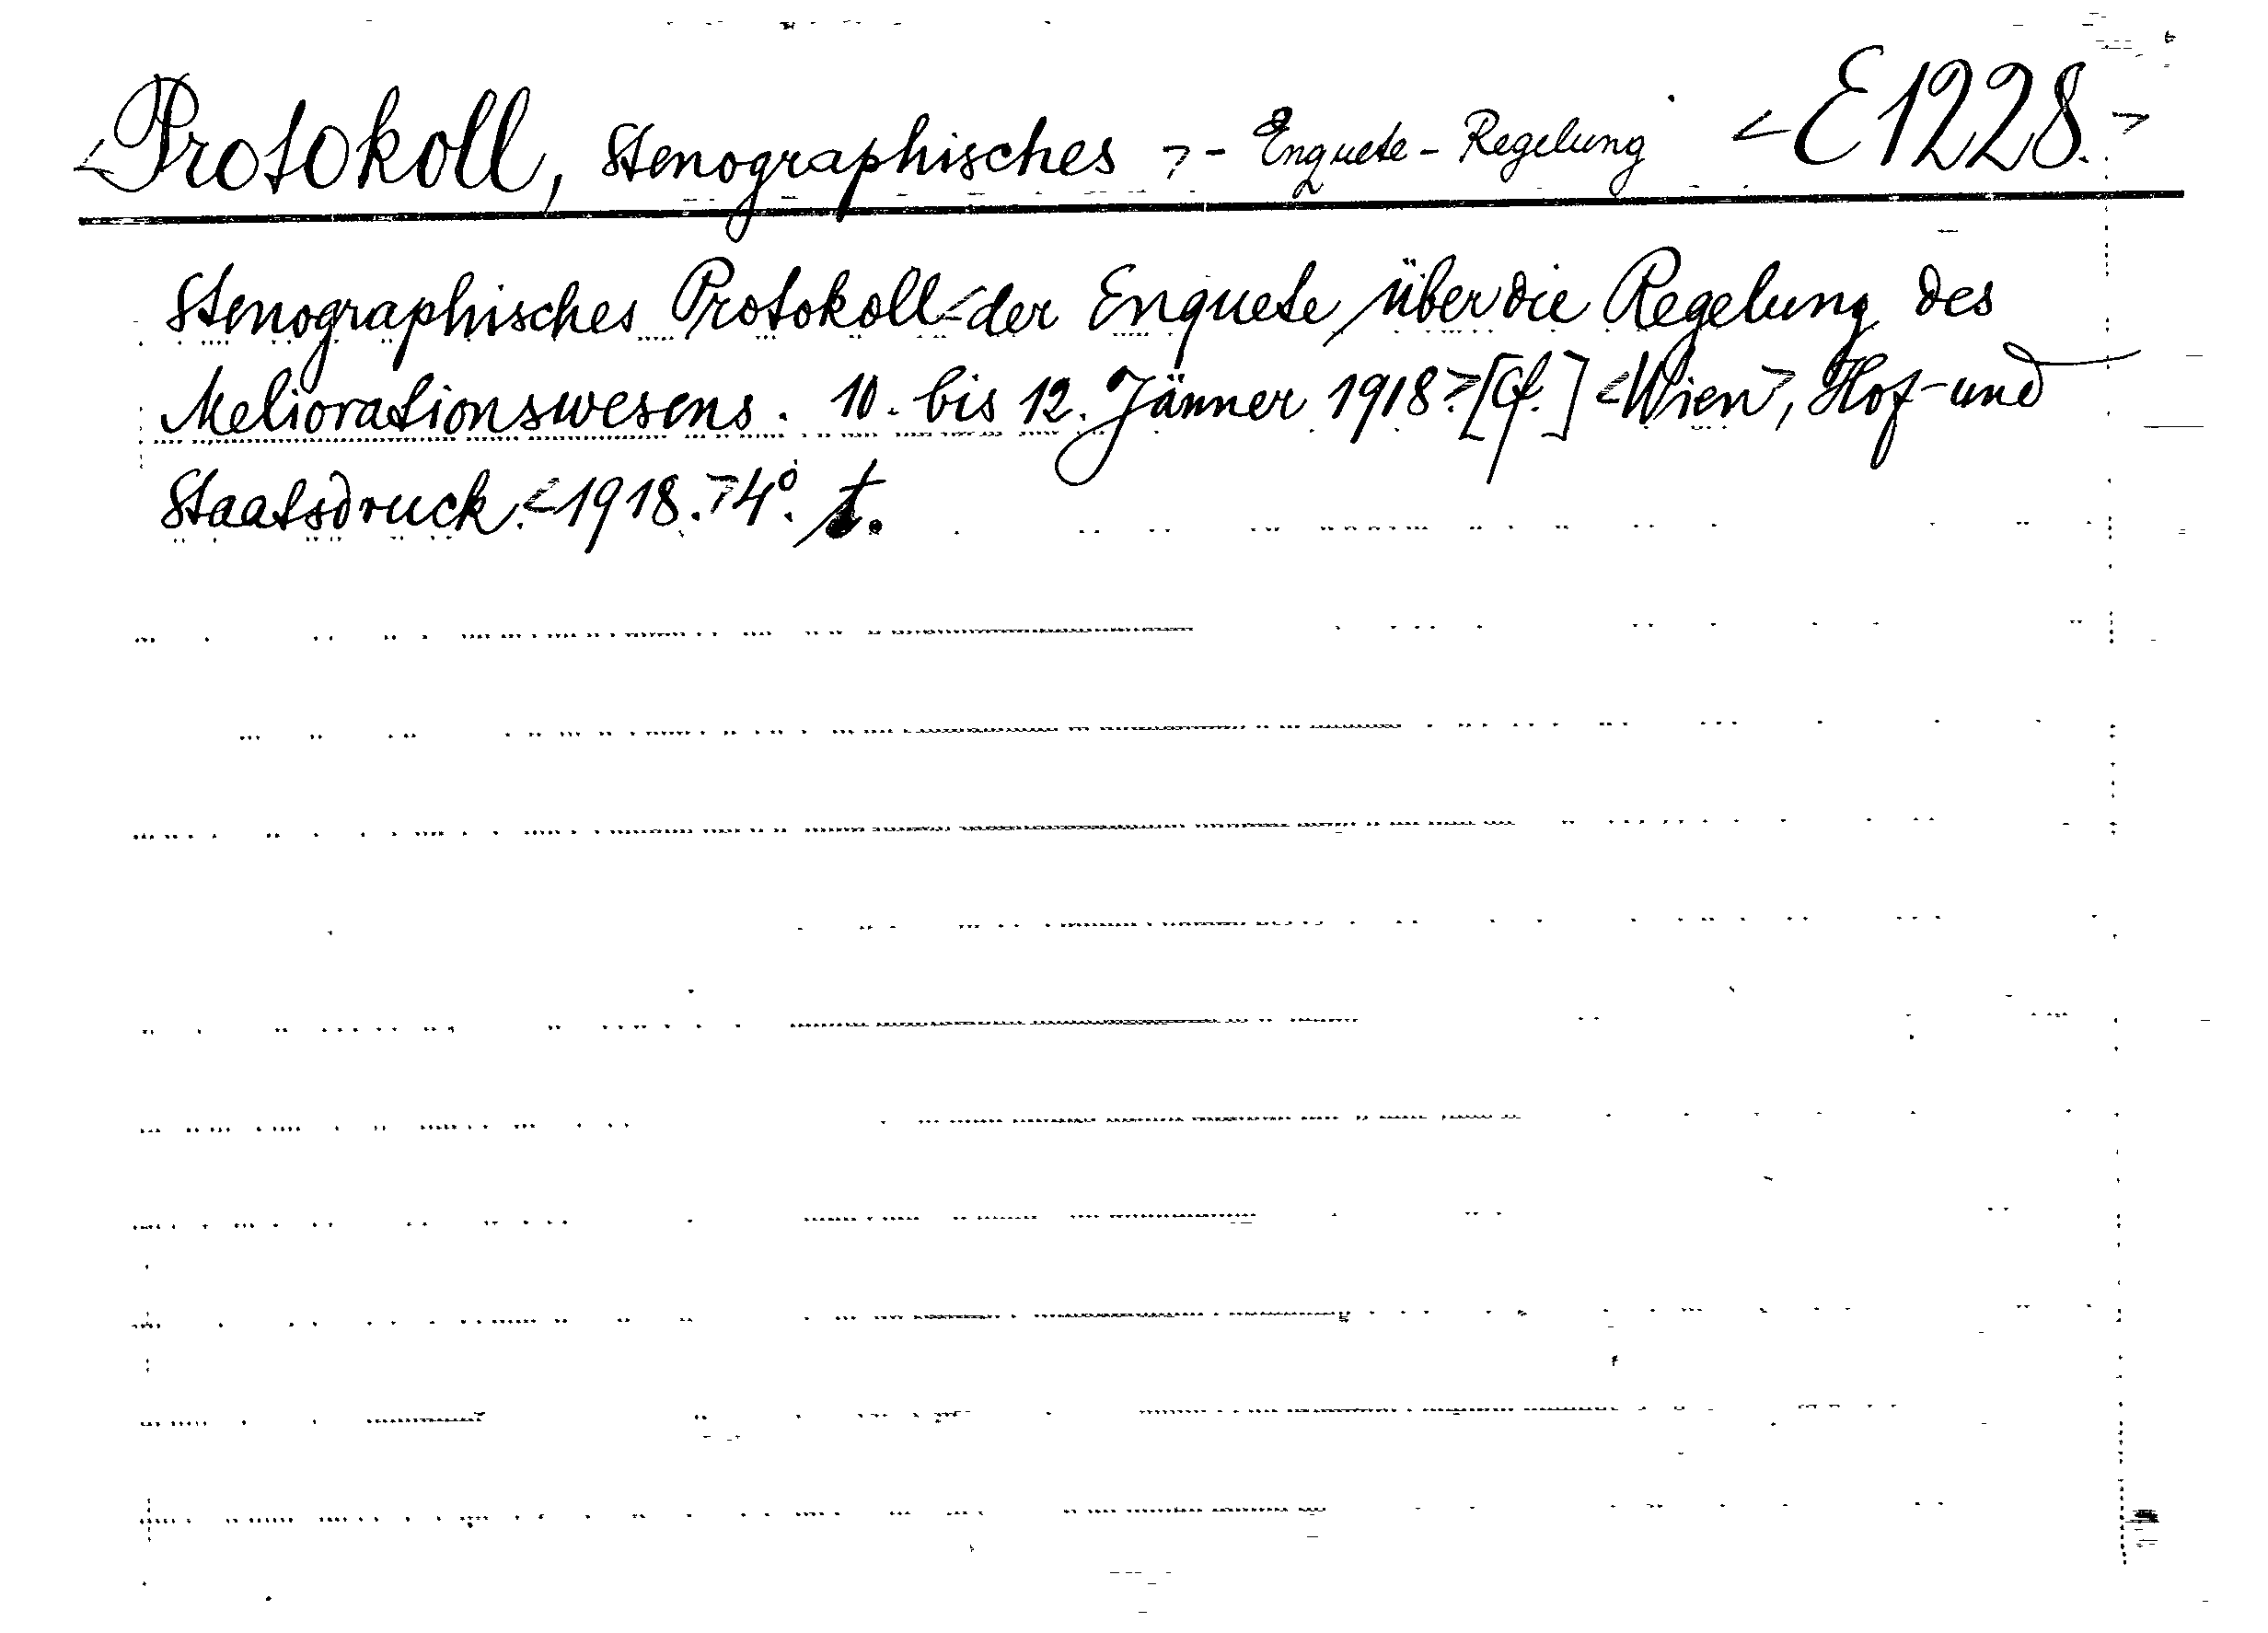 <Protokoll, Stenographisches > - Enquete - Regelung <E1228.>
Stenographisches Protokoll <der Enquete über die Regelung des
Meliorationswesens. 10. bis 12. Jänner 1918.> [Cf.] <Wien>, Hof- und
Staatsdruck. <1918.> 4°. t.